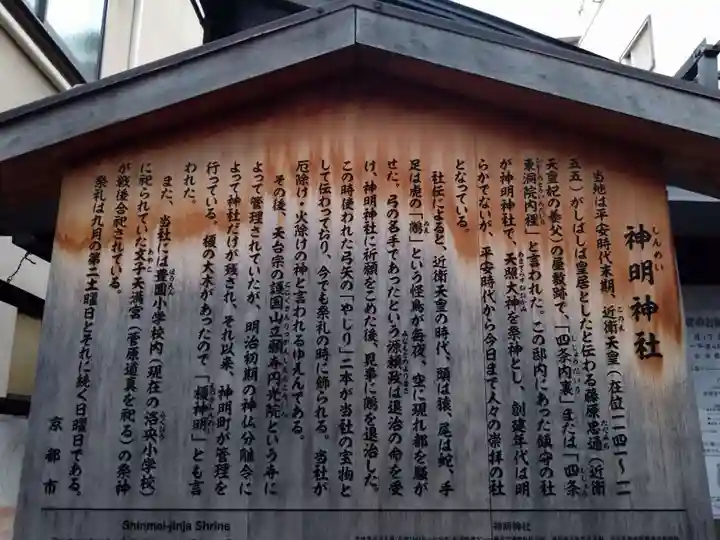 神明神社
当地は平安時代末期、近衛天皇（在位一一四一～一一
五五）がしばしば皇居としたと伝わる藤原忠通（近衛
天皇妃の養父）の屋敷跡で、「四条内裏」または「四条
東洞院内裡」と言われた。この邸内にあった鎮守の社
が神明神社で、天照大神を祭神とし、創建年代は明
らかでないが、平安時代から今日まで人々の崇拝の社
となっている。
社伝によると、近衛天皇の時代、頭は猿、尾は蛇、手
足は虎の「鵺」という怪鳥が毎夜、空に現れ都を騒が
せた。弓の名手であったという源頼政は退治の命を受
け、神明神社に祈願をこめた後、見事に鵺を退治した。
この時使われた弓矢の「やじり」二本が当社の宝物と
して伝わっており、今でも祭礼の時に飾られる。当社が
厄除け・火除けの神と言われるゆえんである。
その後、天台宗の護国山立願寺円光院という寺に
よって管理されていたが、明治初期の神仏分離令に
よって神社だけが残され、それ以来、神明町が管理を
行っている。榎の大木があったので「榎神明」とも言
われた。
また、当社には豊園小学校内（現在の洛央小学校）
に祀られていた文子天満宮（菅原道真を祀る）の祭神
が戦後合祀されている。
祭礼は九月の第二土曜日とそれに続く日曜日である。
京都市
Shinmei-jinja Shrine
神明神社